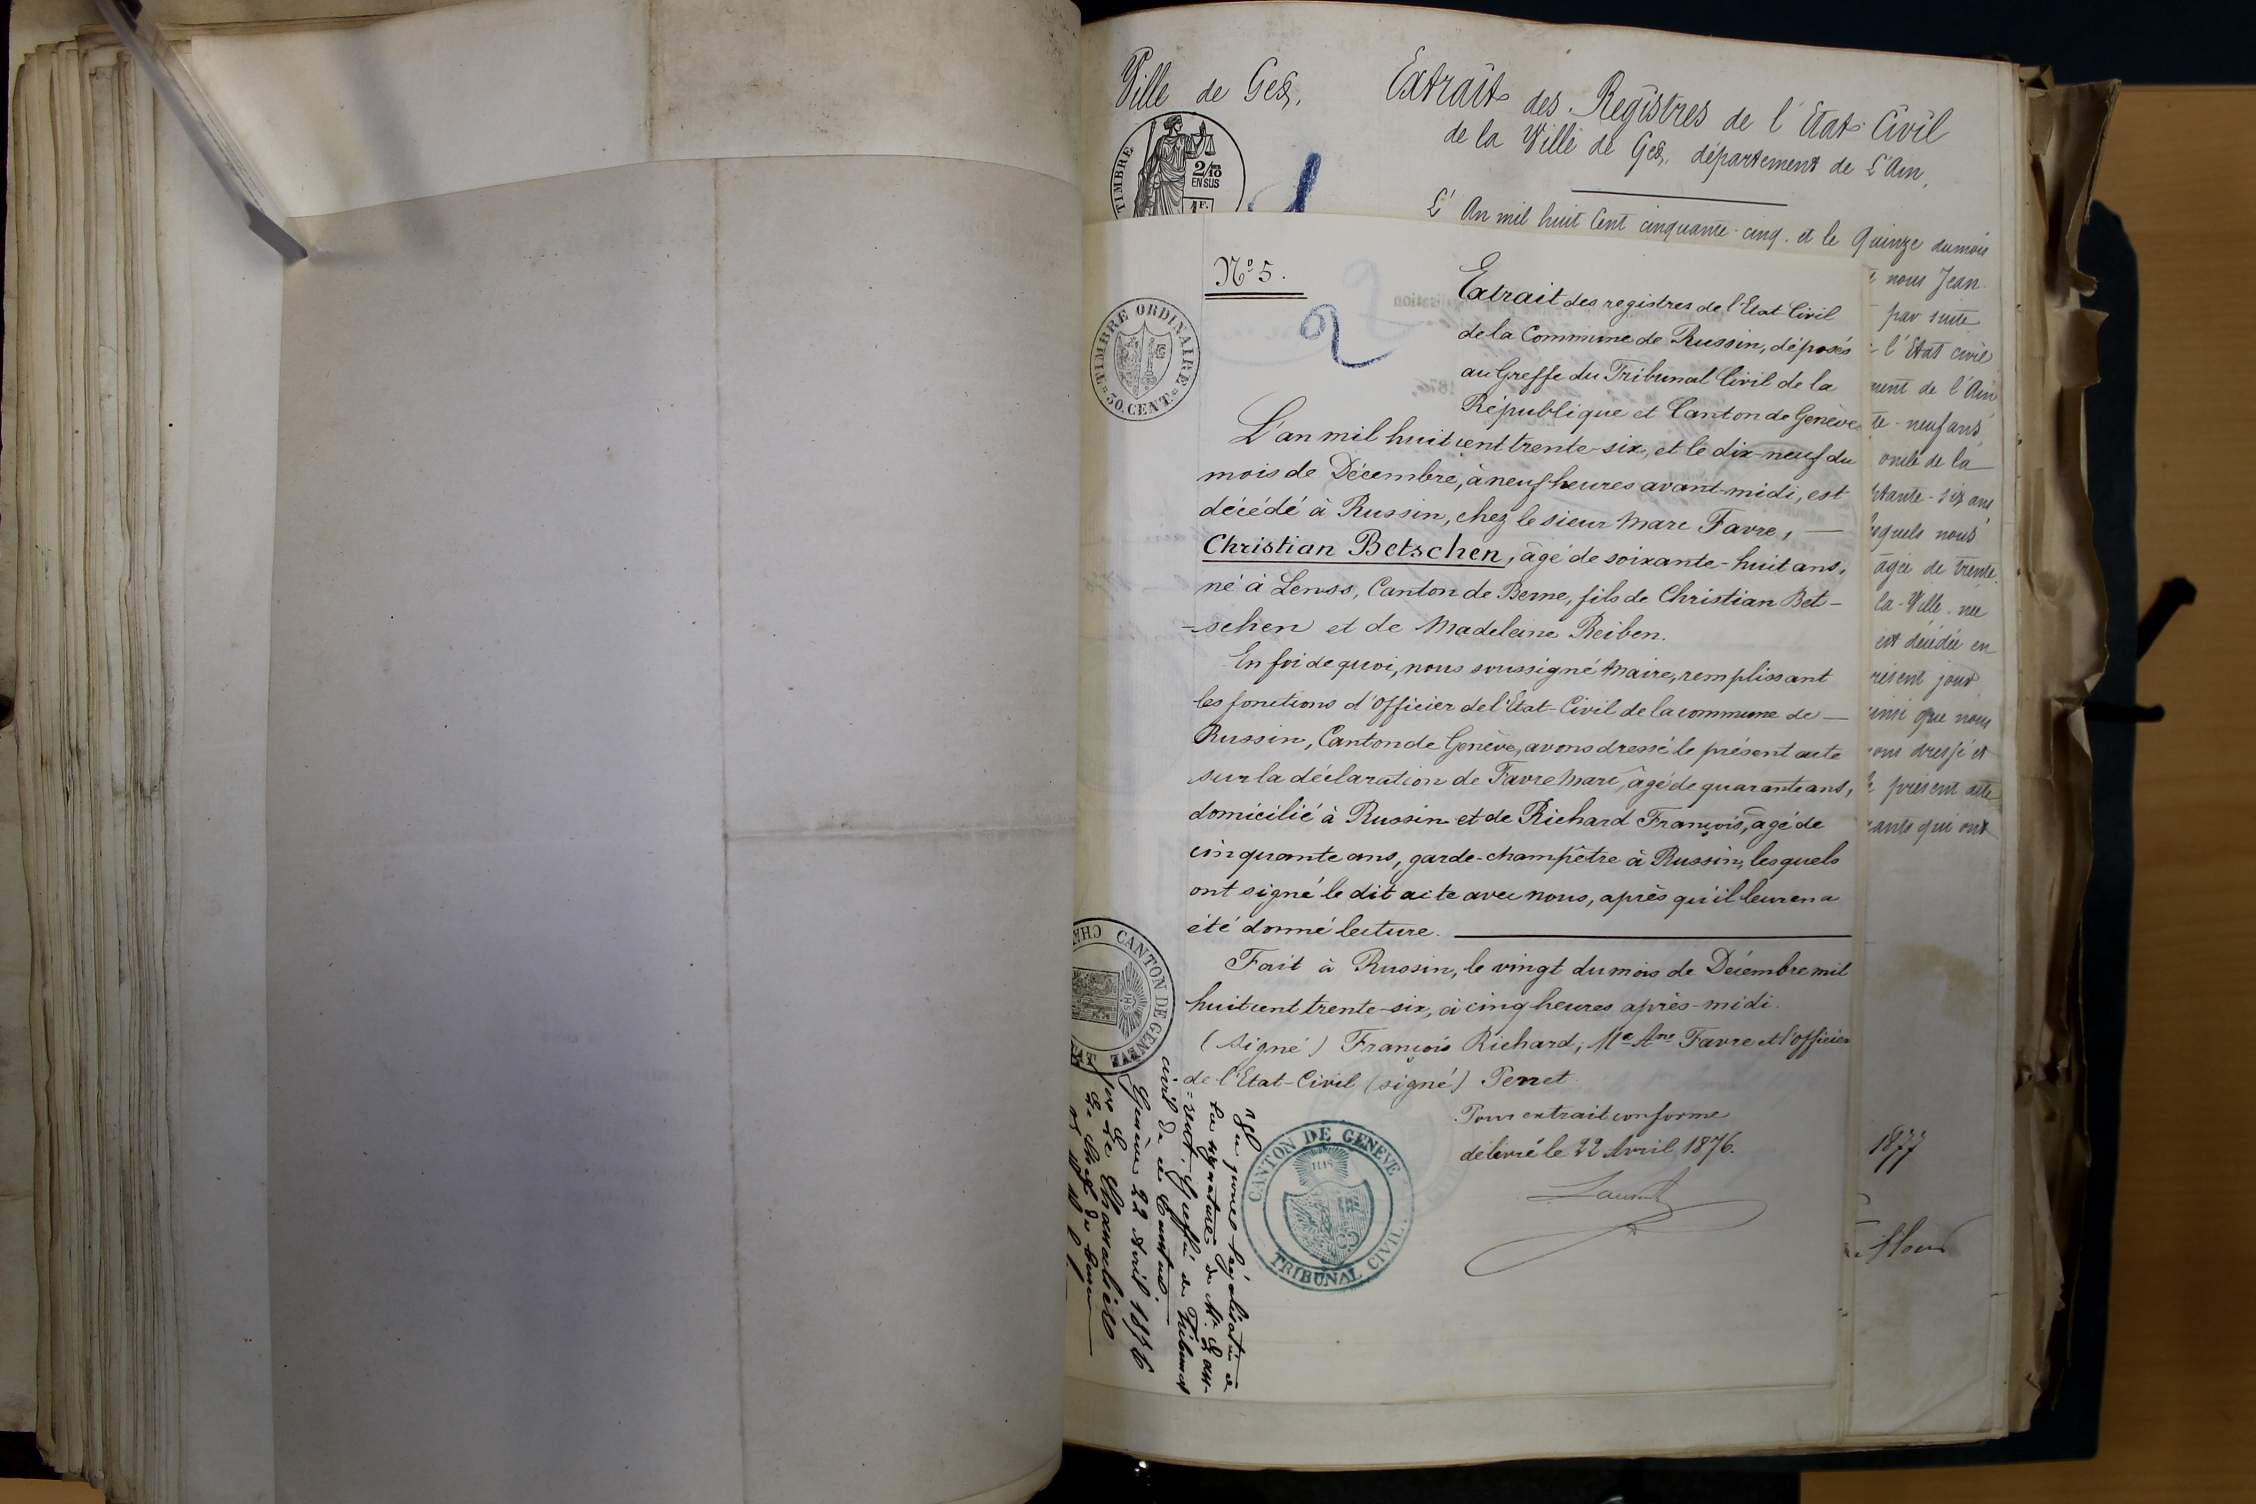 Ville de Gex,
Extrait des Registres de l'Etat Civil
de la Ville de Gex, département de L'Ain,
TIMBRE
2/10
EN SUS
1F.
L' An mil huit Cent cinquante-cinq, et le Quinze du mois
nous Jean
par suite
l'Etat civil
de l'Ain
neuf ans,
de la
six ans
nous
âgée de trente
la-Ville née
est décédée en
jour
que nous
dressé et
présent acte
qui ont
1877
Nº 5.
2
TIMBRE ORDINAIRE
50. CENT.
Extrait des registres de l'Etat-Civil
de la Commune de Russin, déposés
au Greffe du Tribunal Civil de la
République et Canton de Genève
L'an mil huit cent trente-six, et le dix-neuf du
mois de Décembre, à neuf heures avant-midi, est
décédé à Russin, chez le sieur Marc Favre, —
Christian Betschen, âgé de soixante-huit ans,
né à Lenss, Canton de Berne, fils de Christian Bet-
-schen et de Madeleine Reiben.
En foi de quoi, nous soussigné Maire, remplissant
les fonctions d'Officier de l'Etat-Civil de la commune de —
Russin, Canton de Genève, avons dressé le présent acte
sur la déclaration de Favre Marc, âgé de quarante ans,
domicilié à Russin et de Richard François, âgé de
cinquante ans, garde-champêtre à Russin, lesquels
ont signé le dit acte avec nous, après qu'il leur en a
été donné lecture.
Fait à Russin, le vingt du mois de Décembre mil
huit cent trente-six, à cinq heures après-midi.
(Signé) François Richard; Mc Ane Favre et l'officier
de l'Etat-Civil (signé) Perret.
Pour extrait conforme
délivré le 22 Avril 1876.
CANTON DE GENÈVE
TRIBUNAL CIVIL
CANTON DE GENÈVE
Vu pour légalisation de
la signature de Mr Lau-
=rent, Greffier du Tribunal
civil de ce Canton.
Genève 22 Avril 1876
Por le Chancelier
Le Chef de Bureau